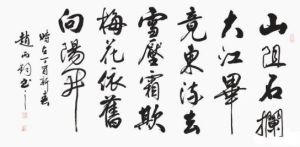 山阻石攔
大江畢
竟東流去
雪壓霜欺
梅花依舊
向陽開
時在丁酉新春
趙